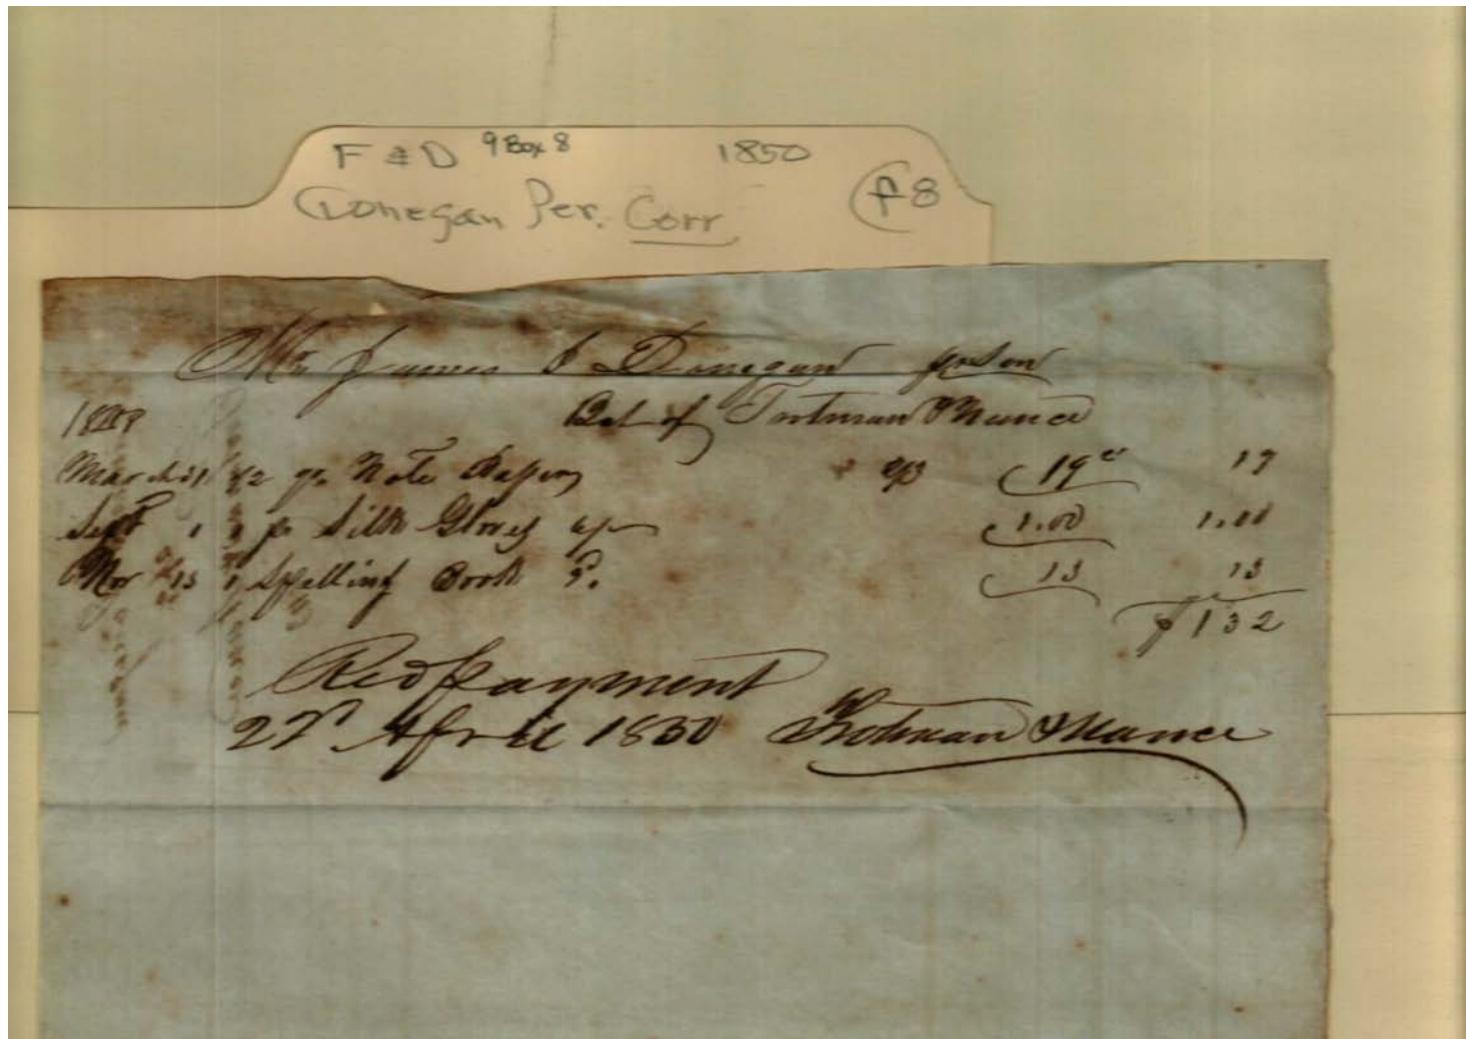 F & D 9 Box 8 1850
Donegan Per. Corr f 8
Mr James J Donegan
Bot of Trotman & Nance
March 31 1/2 qr. Note Paper 19 19
Sept 1 1 pr Silk Gloves 1.00 1.00
Nov 13 1 Spelling Book 13 13
$ 1 32
Recd payment
27th April 1850 Trotman & Nance